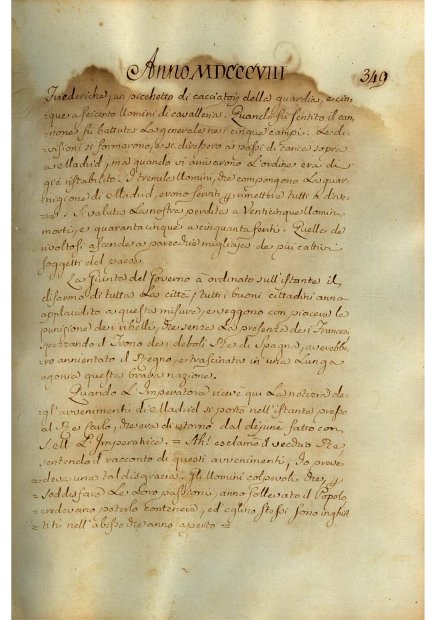 Anno MDCCCVIII 349
Friederichs, un picchetto di cacciatori della guardia, e cin=
que a seicento Uomini di cavalleria. Quando fu sentito il can
none fu battuta La generale ne' cinque campi: Le di=
visioni si formarono, e si diressero a passi di carica sopra
a Madrid, ma quando vi arrivarono L'ordine era di
già ristabilito. Tremila Uomini, che compongono La guar
nigione di Madrid, erano serviti rimettere tutti a dove=
re. Si valuta La nostra perdita a Venticinque Uomini
morti, e quaranta cinque a cinquanta feriti. Quella de'
rivoltosi ascende a parecchie migliaja de' più cattivi
soggetti del paese.
La Giunta del Governo à ordinato sull'istante il
disarmo di tutta La città; tutti i buoni cittadini anno
applaudito a questa misura, e veggono con piacere la
punizione dei ribelli, che senza La presenza dei Francesi
spezzando il Trono dei deboli Re di Spagna, avrebbe=
ro annientato il Regno, e trascinata in una Lunga
agonia questa brava nazione.
Quando L'Imperatore ricevè qui La notizia de=
gl'avvenimenti di Madrid si portò nell'istante presso
al Re Carlo, che era di ritorno dal dejuné fatto con
S. M. L'Imperatrice. = Ah! esclamò il vecchio Re,
sentendo il racconto di questi avvenimenti, Io preve=
deva una tal disgrazia. Gli Uomini colpevoli, che
= soddisfare Le Loro passioni, anno sollevato il Popolo
= credevano poterlo contenere, ed eglino stessi sono inghiot
= titi nell'abisso che anno aperto =